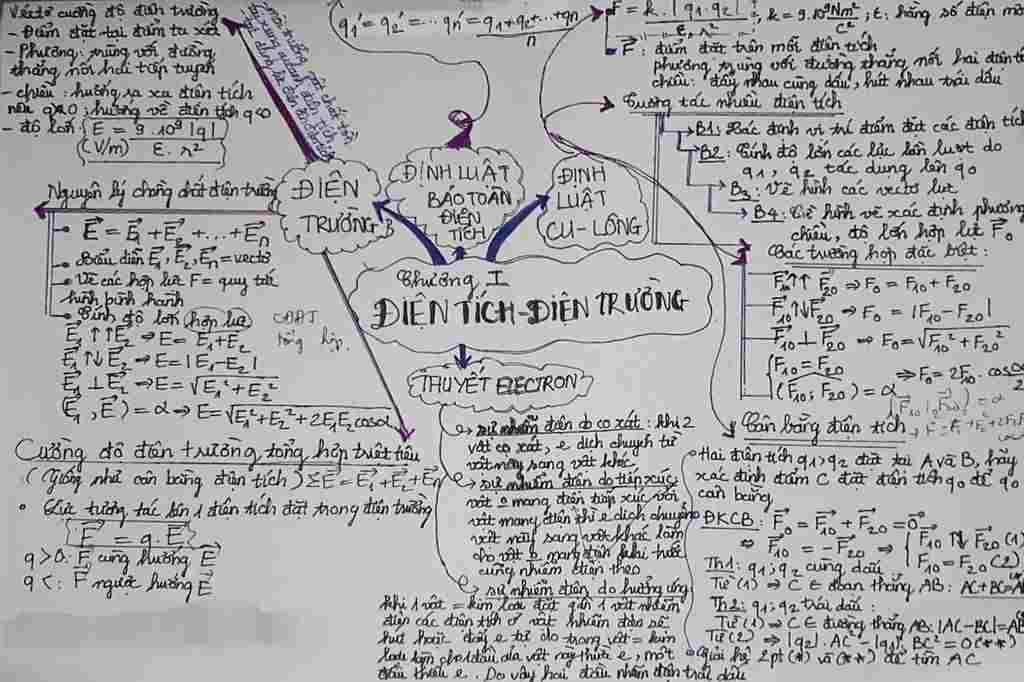 Véctơ cường độ điện trường
- Điểm đặt tại điểm ta xét
- Phương: trùng với đường
thẳng nối hai tiếp tuyến
- chiều: hướng ra xa điện tích
nếu q>0; hướng về điện tích q<0
- độ lớn E = 9.10⁹|q| / ε.r²
(V/m)
q₁' = q₂' = ... qn' = q₁+q₂+...+qn / n
F = k.|q₁.q₂| / ε.r²; k = 9.10⁹ Nm²/C²; ε: hằng số điện mô
F⃗: điểm đặt trên mỗi điện tích
phương trùng với đường thẳng nối hai điện tí
chiều: đẩy nhau cùng dấu, hút nhau trái dấu
Tương tác nhiều điện tích
B1: Xác định vị trí điểm đặt các điện tích
B2: Tính độ lớn các lực lần lượt do
q₁, q₂ tác dụng lên q₀
B3: Vẽ hình các vectơ lực
B4: Từ hình vẽ xác định phương
chiều, độ lớn hợp lực F⃗₀
Các trường hợp đặc biệt:
F⃗₁₀↑↑F⃗₂₀ ⇒ F₀ = F₁₀ + F₂₀
F⃗₁₀↑↓F⃗₂₀ ⇒ F₀ = |F₁₀ - F₂₀|
F⃗₁₀ ⊥ F⃗₂₀ ⇒ F₀ = √F₁₀² + F₂₀²
F₁₀ = F₂₀
(F₁₀; F₂₀) = α ⇒ F₀ = 2F₁₀.cos α/2
ĐIỆN
TRƯỜNG
ĐỊNH LUẬT
BẢO TOÀN
ĐIỆN
TÍCH
ĐỊNH
LUẬT
CU-LÔNG
Chương I
ĐIỆN TÍCH-ĐIỆN TRƯỜNG
THUYẾT ELECTRON
Nguyên lý chồng chất điện trường
E⃗ = E⃗₁ + E⃗₂ + ... + E⃗n
Biểu diễn E⃗₁, E⃗₂, E⃗n = vectơ
Vẽ các hợp lực F = quy tắc
hình bình hành
Tính độ lớn hợp lực
CĐĐT
tổng hợp.
E⃗₁↑↑E⃗₂ ⇒ E = E₁+E₂
E⃗₁↑↓E⃗₂ ⇒ E = |E₁-E₂|
E⃗₁ ⊥ E⃗₂ ⇒ E = √E₁²+E₂²
(E⃗₁, E⃗) = α ⇒ E = √E₁²+E₂²+2E₁E₂cosα
Cường độ điện trường tổng hợp triệt tiêu
(Giống như cân bằng điện tích) ΣE⃗ = E⃗₁+E⃗₂+E⃗n
• Lực tương tác lên 1 điện tích đặt trong điện trường
F⃗ = q.E⃗
q>0: F⃗ cùng hướng E⃗
q<: F⃗ ngược hướng E⃗
sự nhiễm điện do cọ xát: khi 2
vật cọ xát, e dịch chuyển từ
vật này sang vật khác
sự nhiễm điện do tiếp xúc
vật o mang điện tiếp xúc với
vật mang điện thì e dịch chuyển
vật này sang vật khác làm
cho vật o mang điện khi trước
cũng nhiễm điện theo
sự nhiễm điện do hưởng ứng
khi 1 vật = kim loại đặt gần 1 vật nhiễm
điện các điện tích ở vật nhiễm điện sẽ
hút hoặc đẩy e tự do trong vật = kim
loại làm cho 1 đầu của vật này thừa e, một
đầu thiếu e. Do vậy hai đầu nhiễm điện trái dấu
Cân bằng điện tích
Hai điện tích q₁, q₂ đặt tại A và B, hãy
xác định điểm C đặt điện tích q₀ để q₀
cân bằng
ĐKCB: F⃗₀ = F⃗₁₀ + F⃗₂₀ = 0⃗
⇔ F⃗₁₀ = -F⃗₂₀ ⇒ F⃗₁₀↑↓F⃗₂₀ (1)
F₁₀ = F₂₀ (2)
Th1: q₁; q₂ cùng dấu
Từ (1) ⇒ C ∈ đoạn thẳng AB: AC+BC=A
Th2: q₁; q₂ trái dấu:
Từ (1) ⇒ C ∈ đường thẳng AB: |AC-BC|=AB
Từ (2) ⇒ |q₂|.AC² - |q₁|.BC² = 0 (**)
Giải hệ 2pt (*) và (**) để tìm AC